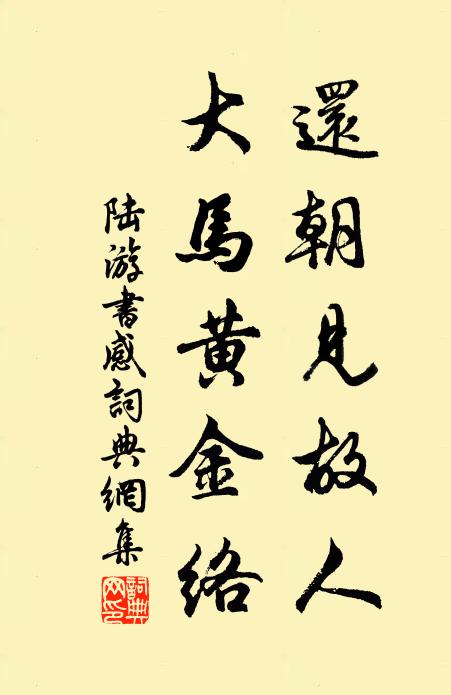 還朝見故人
大馬黃金絡
陆游書感詞典網集
詞典网印